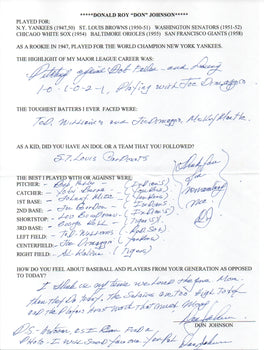 *****DONALD ROY "DON" JOHNSON*****
PLAYED FOR:
N.Y. YANKEES (1947,50) ST. LOUIS BROWNS (1950-51) WASHINGTON SENATORS (1951-52)
CHICAGO WHITE SOX (1954) BALTIMORE ORIOLES (1955) SAN FRANCISCO GIANTS (1958)
AS A ROOKIE IN 1947, PLAYED FOR THE WORLD CHAMPION NEW YORK YANKEES.
THE HIGHLIGHT OF MY MAJOR LEAGUE CAREER WAS:
Pitching against Bob Feller and
Playing with Joe Dimaggio
THE TOUGHEST BATTERS I EVER FACED WERE:
Ted. Williams and Joe Dimaggio, Mickey Mantle
AS A KID, DID YOU HAVE AN IDOL OR A TEAM THAT YOU FOLLOWED?
ST. Louis Cardinals
THE BEST I PLAYED WITH OR AGAINST WERE:
PITCHER - Bob Feller (Indians)
CATCHER -
1ST BASE -
2ND BASE - Joe Gordon (Indians)
SHORTSTOP - Lou Boudreau (Indians)
3RD BASE - George Kell (Tigers)
LEFT FIELD - Ted Williams (Red Sox)
CENTERFIELD - Joe Dimaggio (Yankees)
RIGHT FIELD - Al Kaline (Tigers)
HOW DO YOU FEEL ABOUT BASEBALL AND PLAYERS FROM YOUR GENERATION AS OPPOSED
TO TODAY?
I think in my time we loved the game more
than they do today. The Salaries are Too High Today
and the Players
Don Johnson
DON JOHNSON
P.S.
Photo - I will send you one
Don Johnson